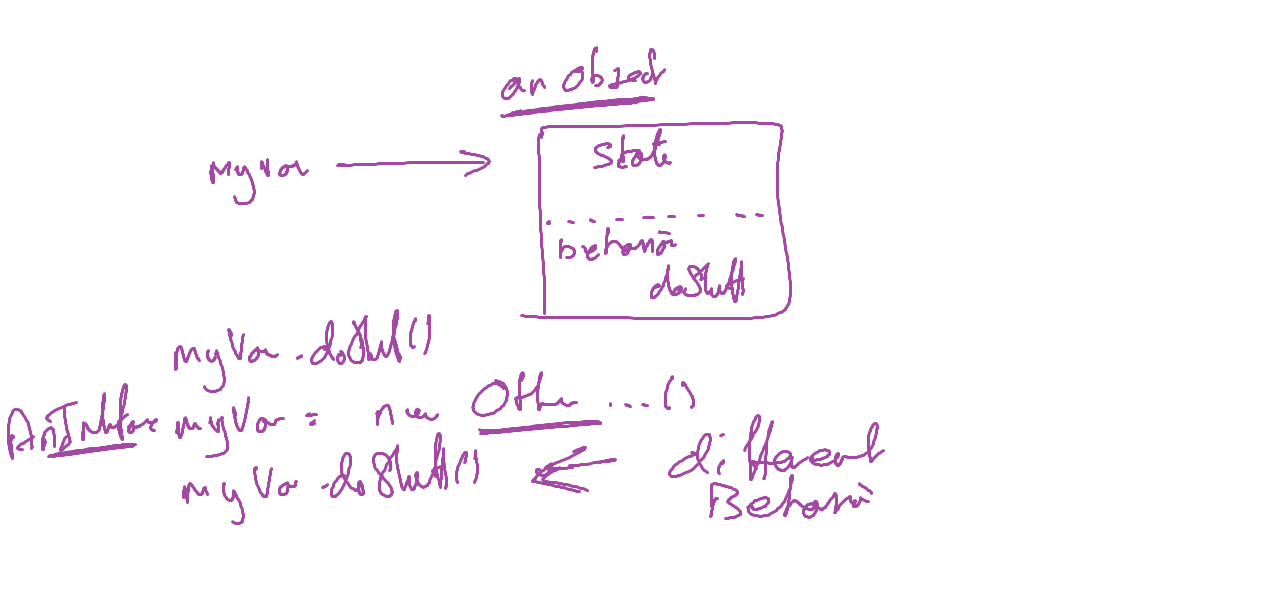 an Object
myVar
State
behavior
doStuff
myVar.doStuf()
AnInterface myVar = new Other ...()
myVar.doStuff()
different
Behavior